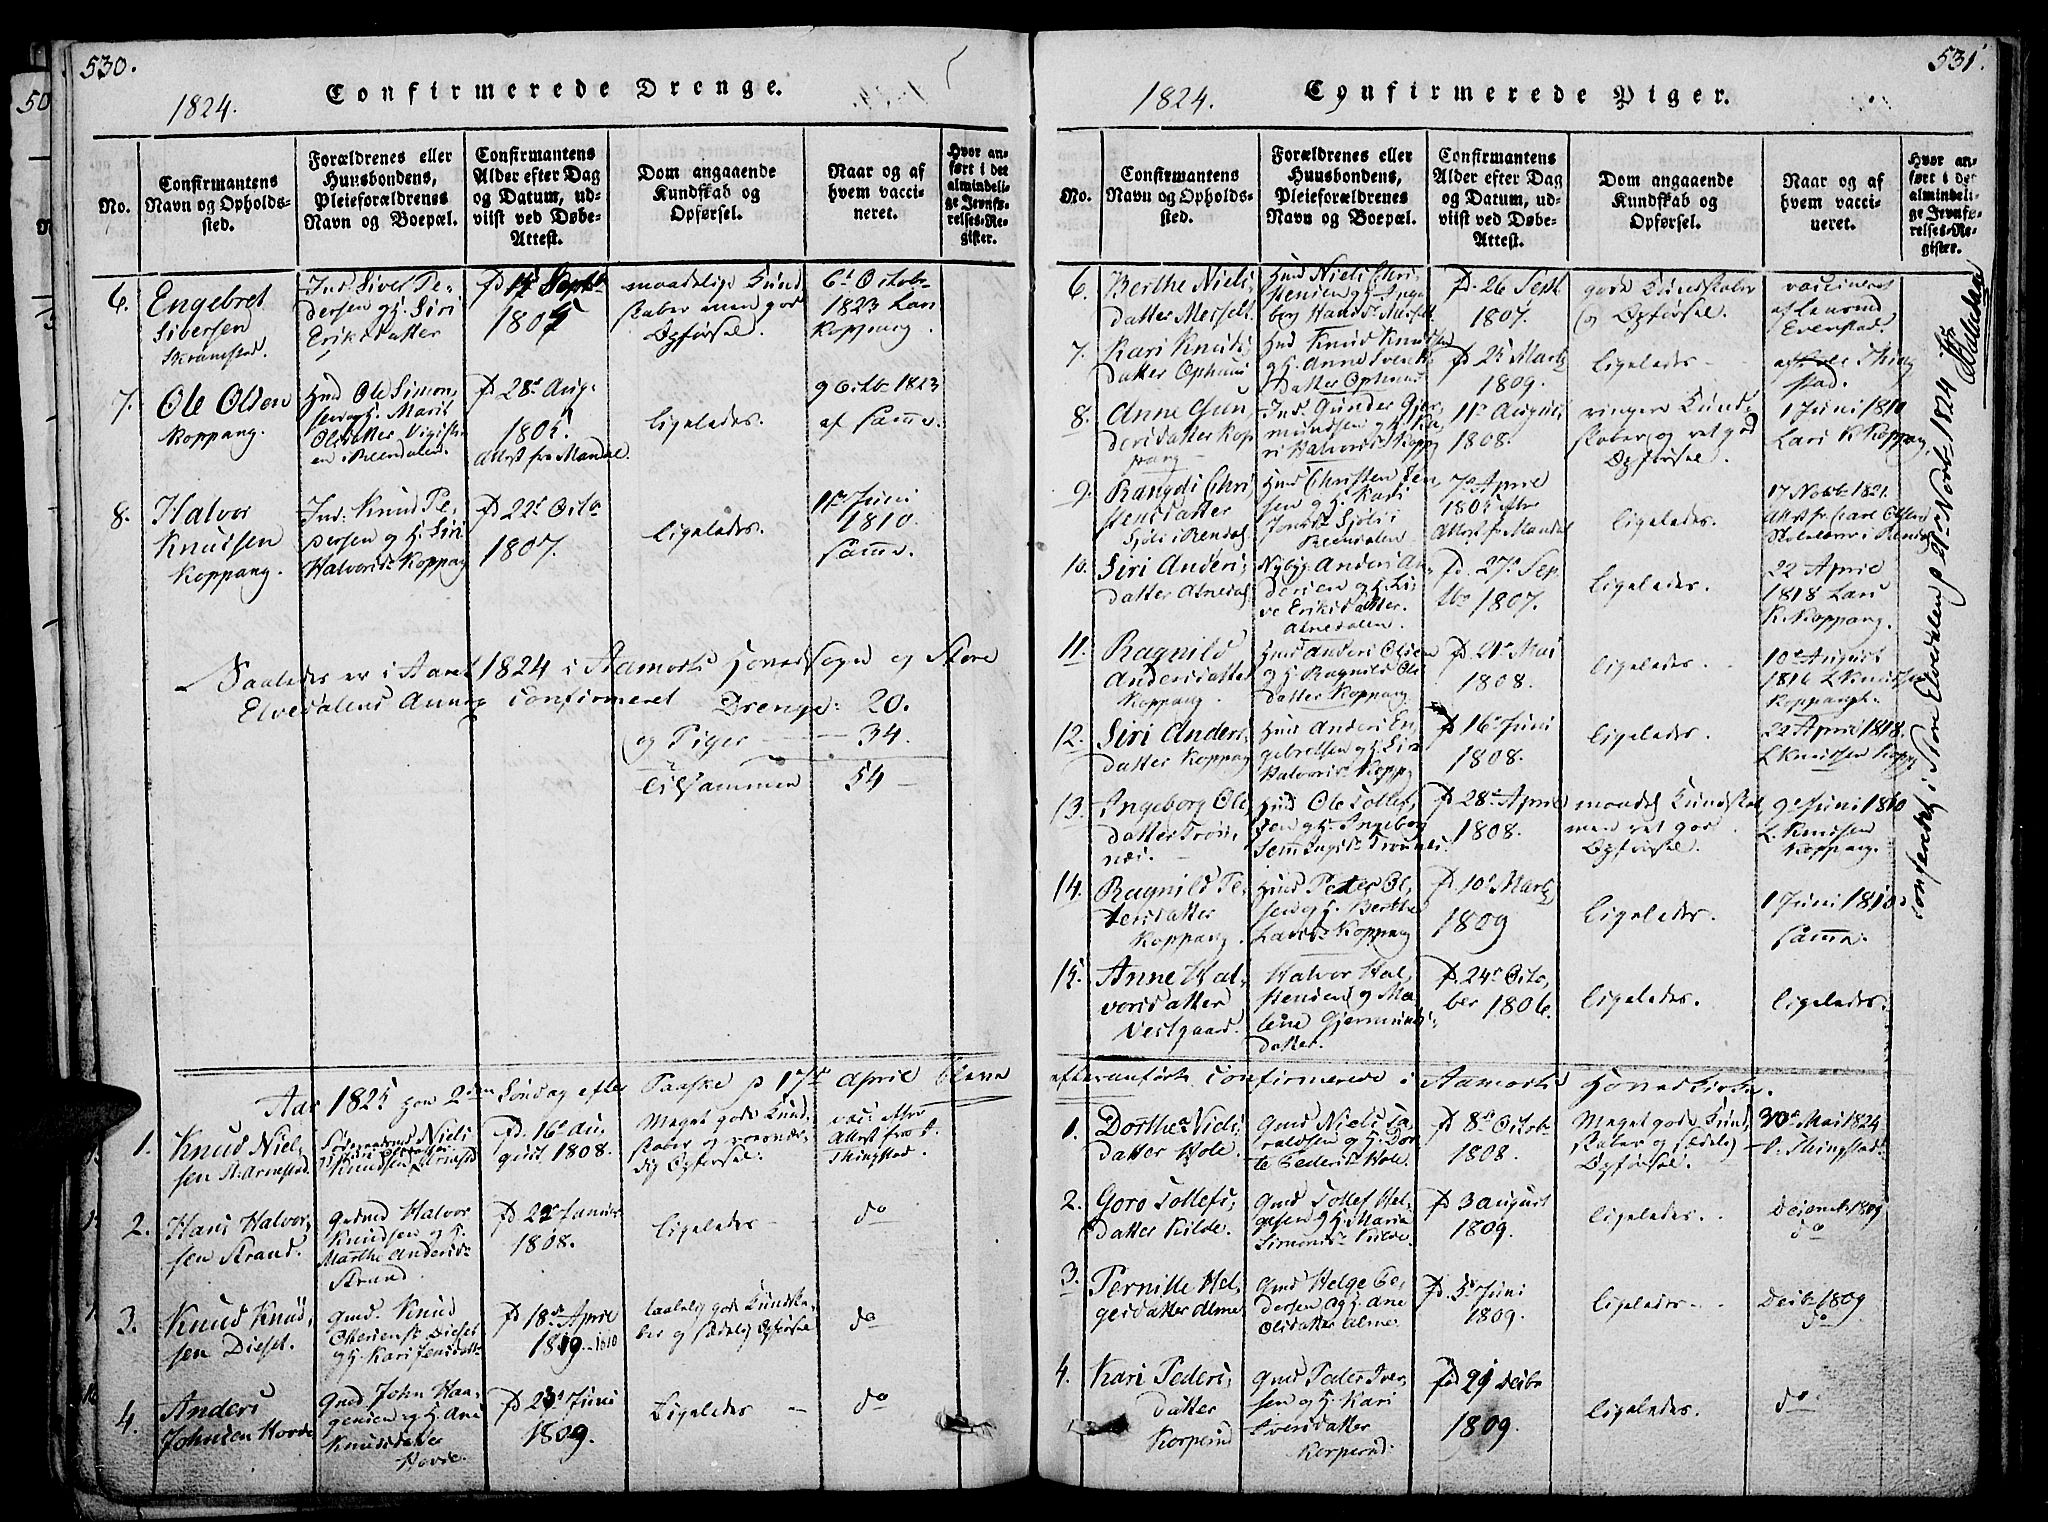 530.
1824.
Confirmerede Drenge.
No.
Confirmantens Navn og Opholdssted.
Forældrenes eller Huusbondens, Pleieforældrenes Navn og Boepæl.
Confirmantens Alder efter Dag og Datum, udviist ved Døbe-Attest.
Dom angaaende Kundskab og Opførsel.
Naar og af hvem vaccineret.
Hvor anført i det almindelige Jevnførelses-Register.
6.
Engebret
Siversen
Ind. Siver Pe-
dersen og H. Siri
Eriksdatter
maadelige Kund-
skaber men god
Opførsel.
6t Octob.
1823 Lars
Koppang.
7.
Ole Olsen
Koppang.
Hmd Ole Simon-
sen og H. Marit
Olsdatter
fd 28de Aug.
1805.
Attest fra Mandal.
ligeledes.
9 Octb. 1823
af samme.
8.
Halvor
Knudsen
Koppang.
Ind: Knud Pe-
dersen og H. Siri
Halvorsdr Koppang
fd 22de Octbr
1807.
ligeledes.
11te Juni
1810.
samme.
Saaledes er i Aaret 1824 i Aamodts Hovedsogn og Store
Elvedalens Annex Confirmeret Drenge: 20.
og Piger — 34.
Tilsammen 54 —
Aar 1825 paa 2den Søndag efter Paaske d 17de April bleve
1.
Knud Niel-
sen
Knudsen
fd. 16de Au-
gust. 1808.
Meget gode Kund-
skaber og
Opførsel.
vacc. efter
Attest fra
Thingstad.
2.
Hans Halvor-
sen Strand.
Gudmd Halvor
Knudsen og H.
Marthe Andersdr
Strand.
1808.
ligeledes —
do
3.
Knud Knud-
sen Dieset.
Gmd. Knud
og H. Kari Jensdattr
fd 18de April
1809 - 1810
gode Kundska-
ber og sædelig Opførsel
do
4.
Anders
Johnsen Hovde
Gmd John Haa-
gensen og H. Ane
Knudsdatter
Hovde.
1809.
Ligeledes —
do
531.
1824.
Confirmerede Piger.
No.
Confirmantens Navn og Opholdssted.
Forældrenes eller Huusbondens, Pleieforældrenes Navn og Boepæl.
Confirmantens Alder efter Dag og Datum, udviist ved Døbe-Attest.
Dom angaaende Kundskab og Opførsel.
Naar og af hvem vaccineret.
Hvor anført i det almindelige Jevnførelses-Register.
6.
Berthe Niels-
datter Messelt
Hmd Niels Chri-
stensen og H. Inge-
borg Hansdr Messelt
fd. 26 Sept
1807.
gode Kundskaber
og Opførsel.
vaccineret
af Evenstad.
7.
Kari Knuds-
datter Ophuus
Hmd Knud Knudsen
og H. Anne
datter Ophuus
1809.
ligeledes
8.
Anne Gun-
dersdatter Kop-
pang —
Ind. Gunder Gjer-
mundsen og H. Ka-
ri Halvorsdr Kopp
11te August
1808.
ringere Kund-
skaber, og ret god
Opførsel.
1 Juni 1810
Lars K. Koppang.
9.
Rangdi Chri-
stensdatter
Sjøli i Rendal.
Hmd Christen Jen-
sen og H. Kari
Jensdr Sjøli i
Reendalen
7de April
1805 efter
Attest fr. Mandal
ligeledes.
17 Novbr 1821.
10.
Siri Anders-
datter Atnedal
Nybyg. Anders An-
dersen og H. Li-
ve Eriksdatter.
Atnedalen.
fd. 27de Sep
tbr 1807.
ligeledes.
22 April
1818 Lars
K. Koppang.
11.
Ragnild
Andersdatter
Koppang.
Hmd Anders Olsen
og H. Ragnild Ols-
datter Koppang.
fd. 21de Mai
1808.
ligeledes. —
10de August
1816 L Knudsen
Koppang.
12.
Siri Anders-
datter Koppang
Anders En-
gebretsen og H. Siri
Halvorsdr Kopp
fd 16de Juni
1808.
ligeledes.
22 April 1818.
L Knudsen Kopp
13.
Ingeborg Ols-
datter Trøn-
næs. —
Hmd Ole Tollef-
sen og H. Ingeborg
Semmingsdr Trønnes.
fd 28de April
1808.
maadel. Kundskab
men ret god
Opførsel.
9de Juni 1810
L. Knudsen
Koppang.
14.
Ragnild Pe-
tersdatter
Koppang.
Hmd Peter Ol-
sen og H. Berthe
Larsdr Koppang
fd. 10de Marts
1809
ligeledes.
1 Juni 1810.
samme.
15.
Anne Hal-
vorsdatter
Vestgaard.
Halvor Hal-
stensen og Ma-
lene Gjermunds-
datter.
fd. 24de Octo-
ber 1806.
ligeledes.
ligeledes.
efteranførte Confirmerede i Aamodts Hovedkirke.
1.
Dorthe Niels-
datter Hole
Gmd Niels Ha-
raldsen og H. Dor-
te Pedersdr Hole.
fd 8de Octob
1808.
Meget gode Kund-
skaber og sædelig
Opførsel.
30de Mai 1824
Thingstad.
2.
Goro Tollefs-
datter Kilde.
Gmd Tollef Hel-
gesen og H. Marie
Simonsdr Kilde.
fd 3 August
1809.
ligeledes. —
1809
do
3.
Pernille Hel-
gesdatter Alme
Gmd Helge Pe-
dersen og H. Ane
Olsdatter Alme.
fd. 5te Juni
1809.
ligeledes —
Decbr 1809
do
4.
Kari Peders-
datter
Korperud
Gmd Peder Iver-
sen og H. Kari
Iversdatter
Korperud.
fd 29 Decbr
1809.
ligeledes.
do
confereret i Store Elvedalen d 21de Novbr 1824